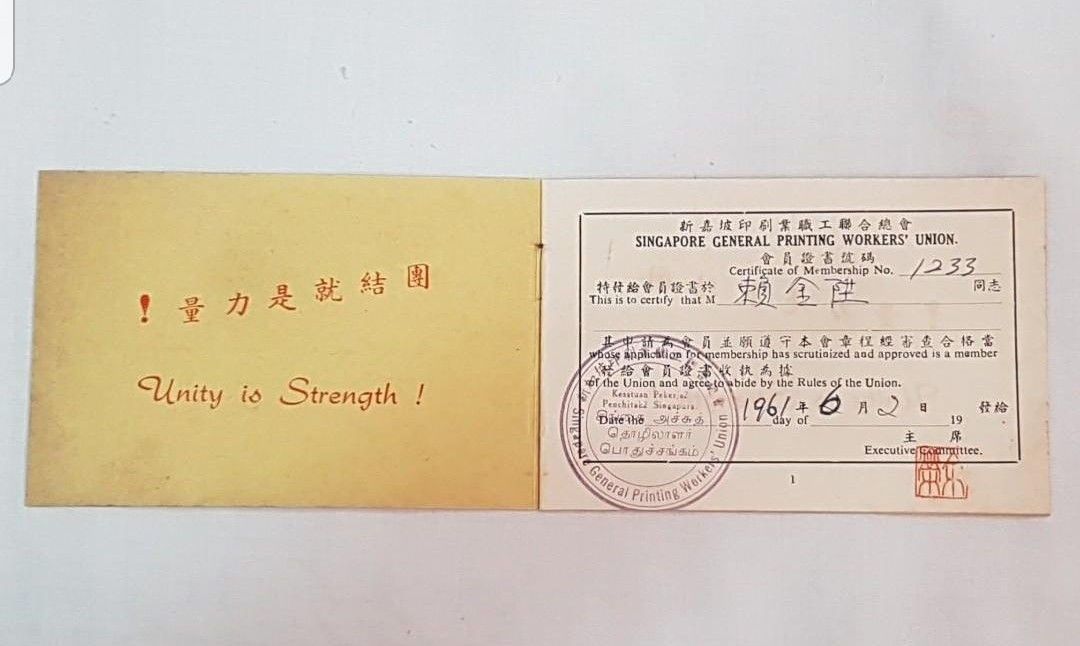 團結就是力量！
Unity is Strength !
新嘉坡印刷業職工聯合總會
SINGAPORE GENERAL PRINTING WORKERS' UNION.
會員證書號碼
Certificate of Membership No. 1233
特發給會員證書於 賴金陞 同志
This is to certify that M
其申請為會員並願遵守本會章程經審查合格當
whose application for membership has scrutinized and approved is a member
發給會員證書收執為據
of the Union and agree to abide by the Rules of the Union.
1961 年 6 月 2 日 發給
Date the day of 19
主席
Executive Committee.
Kesatuan Pekerja2
Penchitak2 Singapura
அச்சுத்
தொழிலாளர்
பொதுச்சங்கம்
Singapore General Printing Workers' Union
1